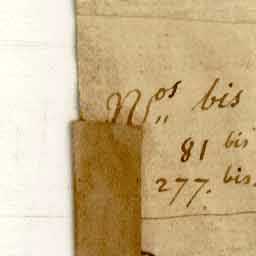 Nos bis
81 bis
277. bis.